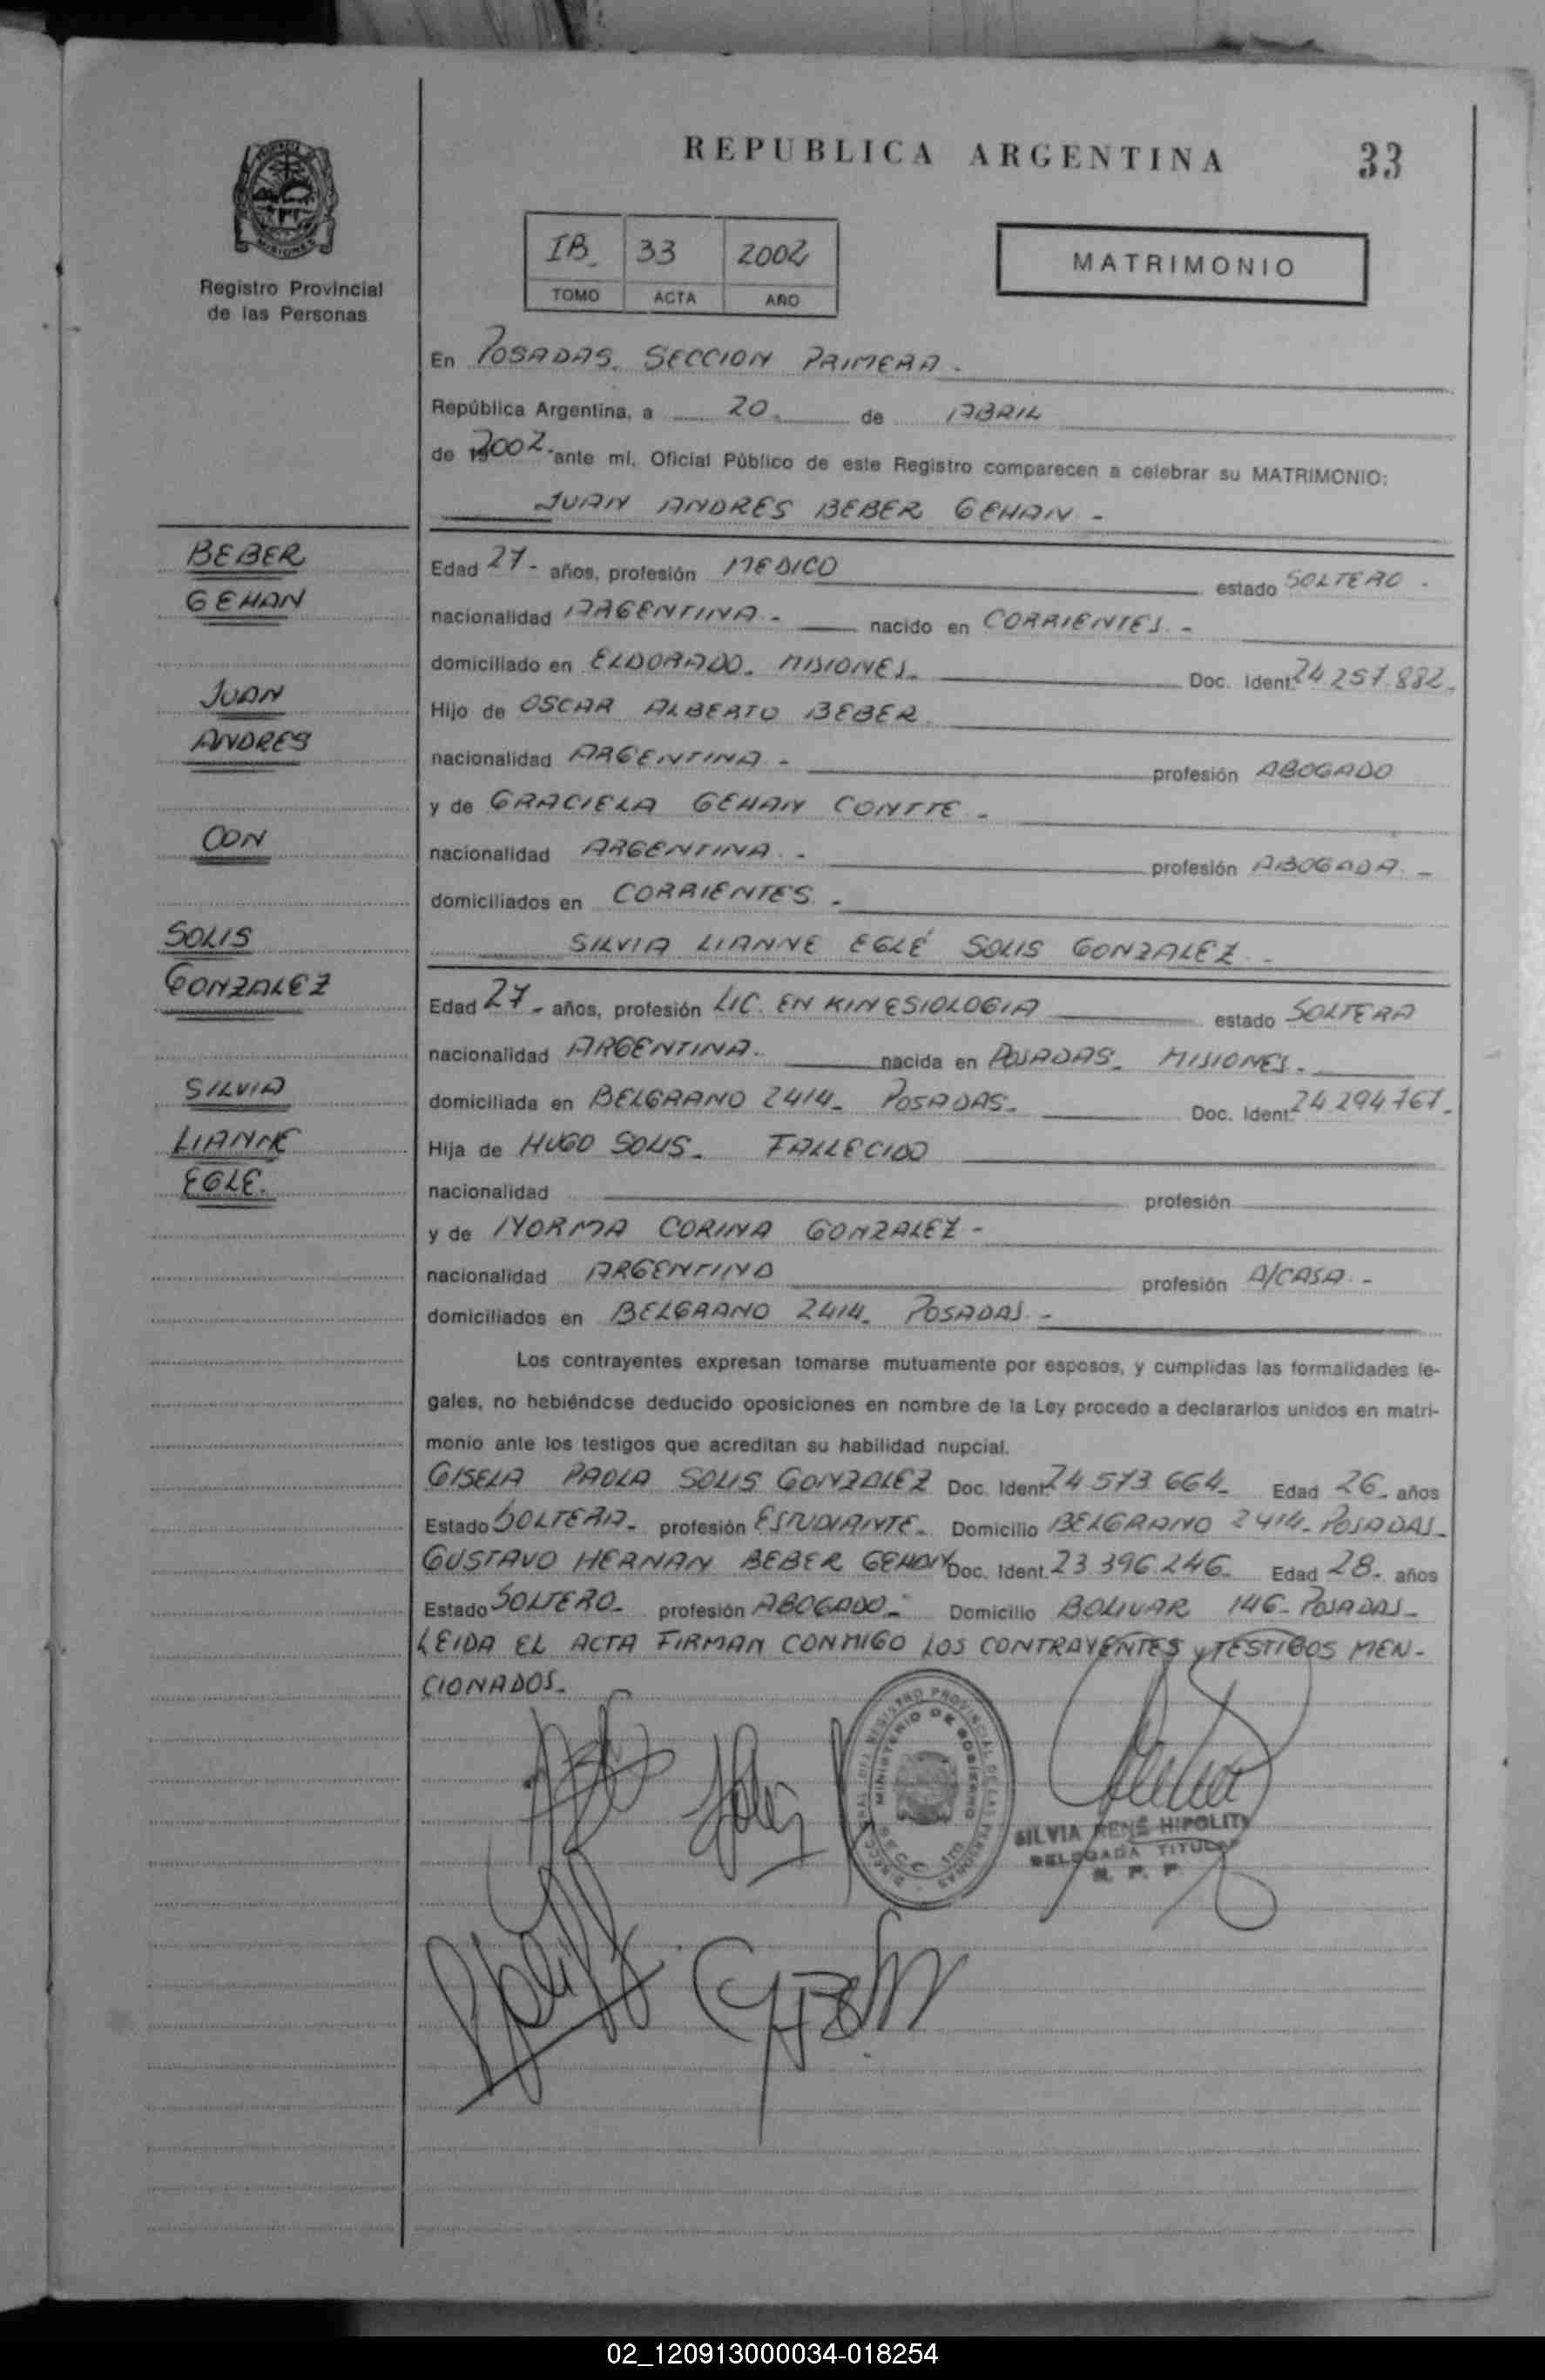 REPUBLICA ARGENTINA 33
MISIONES
Registro Provincial
de las Personas
IB 33 2002
TOMO ACTA AÑO
MATRIMONIO
En POSADAS. SECCION PRIMERA.
República Argentina, a 20. de ABRIL
de 2002. ante mí, Oficial Público de este Registro comparecen a celebrar su MATRIMONIO:
JUAN ANDRES BEBER GEHAN -
BEBER
GEHAN
JUAN
ANDRES
CON
SOLIS
GONZALEZ
SILVIA
LIANNE
EGLE.
Edad 27- años, profesión MEDICO estado SOLTERO.
nacionalidad ARGENTINA.- nacido en CORRIENTES.-
domiciliado en ELDORADO. MISIONES. Doc. Ident. 24 257.882.
Hijo de OSCAR ALBERTO BEBER
nacionalidad ARGENTINA - profesión ABOGADO
y de GRACIELA GEHAN CONTTE -
nacionalidad ARGENTINA.- profesión ABOGADA.-
domiciliados en CORRIENTES.-
SILVIA LIANNE EGLÉ SOLIS GONZALEZ.-
Edad 27- años, profesión LIC. EN KINESIOLOGIA estado SOLTERA
nacionalidad ARGENTINA. nacida en POSADAS. MISIONES.
domiciliada en BELGRANO 2414. POSADAS. Doc. Ident. 24 294 767.
Hija de HUGO SOLIS. FALLECIDO
nacionalidad profesión
y de NORMA CORINA GONZALEZ -
nacionalidad ARGENTINA profesión A/CASA.-
domiciliados en BELGRANO 2414. POSADAS.-
Los contrayentes expresan tomarse mutuamente por esposos, y cumplidas las formalidades le-
gales, no habiéndose deducido oposiciones en nombre de la Ley procedo a declararlos unidos en matri-
monio ante los testigos que acreditan su habilidad nupcial.
GISELA PAOLA SOLIS GONZALEZ Doc. Ident. 24 573 664. Edad 26. años
Estado SOLTERA. profesión ESTUDIANTE. Domicilio BELGRANO 2414. POSADAS.
GUSTAVO HERNAN BEBER GEHAN Doc. Ident. 23 396.246. Edad 28. años
Estado SOLTERO. profesión ABOGADO. Domicilio BOLIVAR 146. POSADAS.
LEIDA EL ACTA FIRMAN CONMIGO LOS CONTRAYENTES y TESTIGOS MEN-
CIONADOS.
REGISTRO PROVINCIAL DE LAS PERSONAS
MINISTERIO DE GOBIERNO
SILVIA RENÉ HIPOLITO
DELEGADA TITULAR
R. P. P.
02_120913000034-018254